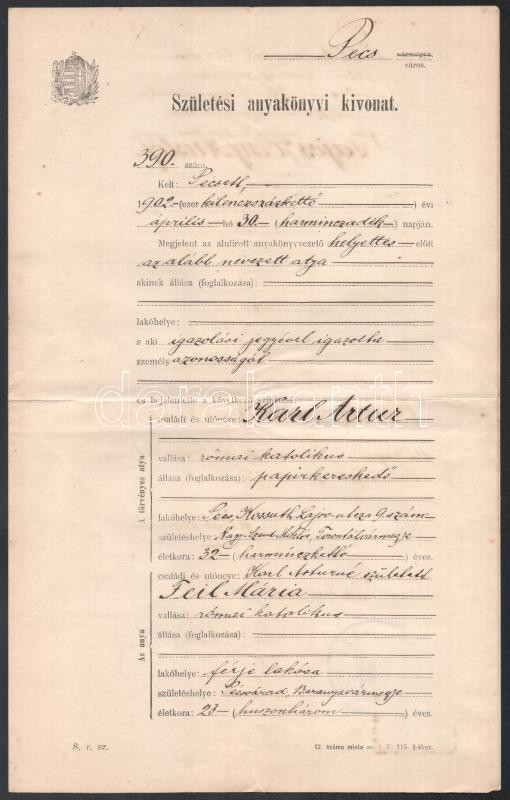 Pécs vármegye.
város.
Születési anyakönyvi kivonat.
390. szám.
Kelt: Pécsett,
1902.-(ezer kilenczszázkettő) évi
április hó 30.-(harminczadik) napján.
Megjelent az alulirott anyakönyvvezető helyettes előtt
az alább nevezett atya
akinek állása (foglalkozása):
lakóhelye:
s aki igazolási jegyével igazolta
személyazonosságát
és bejelentette a következő születést:
A törvényes atya
családi és utóneve: Karl Artur
vallása: római katolikus
állása (foglalkozása): papirkereskedő
lakóhelye: Pécs, Kossuth Lajos utcza 9 szám
születéshelye: Nagy-Szent-Miklós, Torontálvármegye
életkora: 32-(harminczkettő) éves.
Az anya
családi és utóneve: Karl Arturné született
Feil Mária
vallása: római katolikus
állása (foglalkozása):
lakóhelye: férje lakása
születéshelye: Pécsvárad, Baranyavármegye
életkora: 23-(huszonhárom) éves.
S. r. sz.
12. számu minta az A. U. 115. §-ához.
darabanth